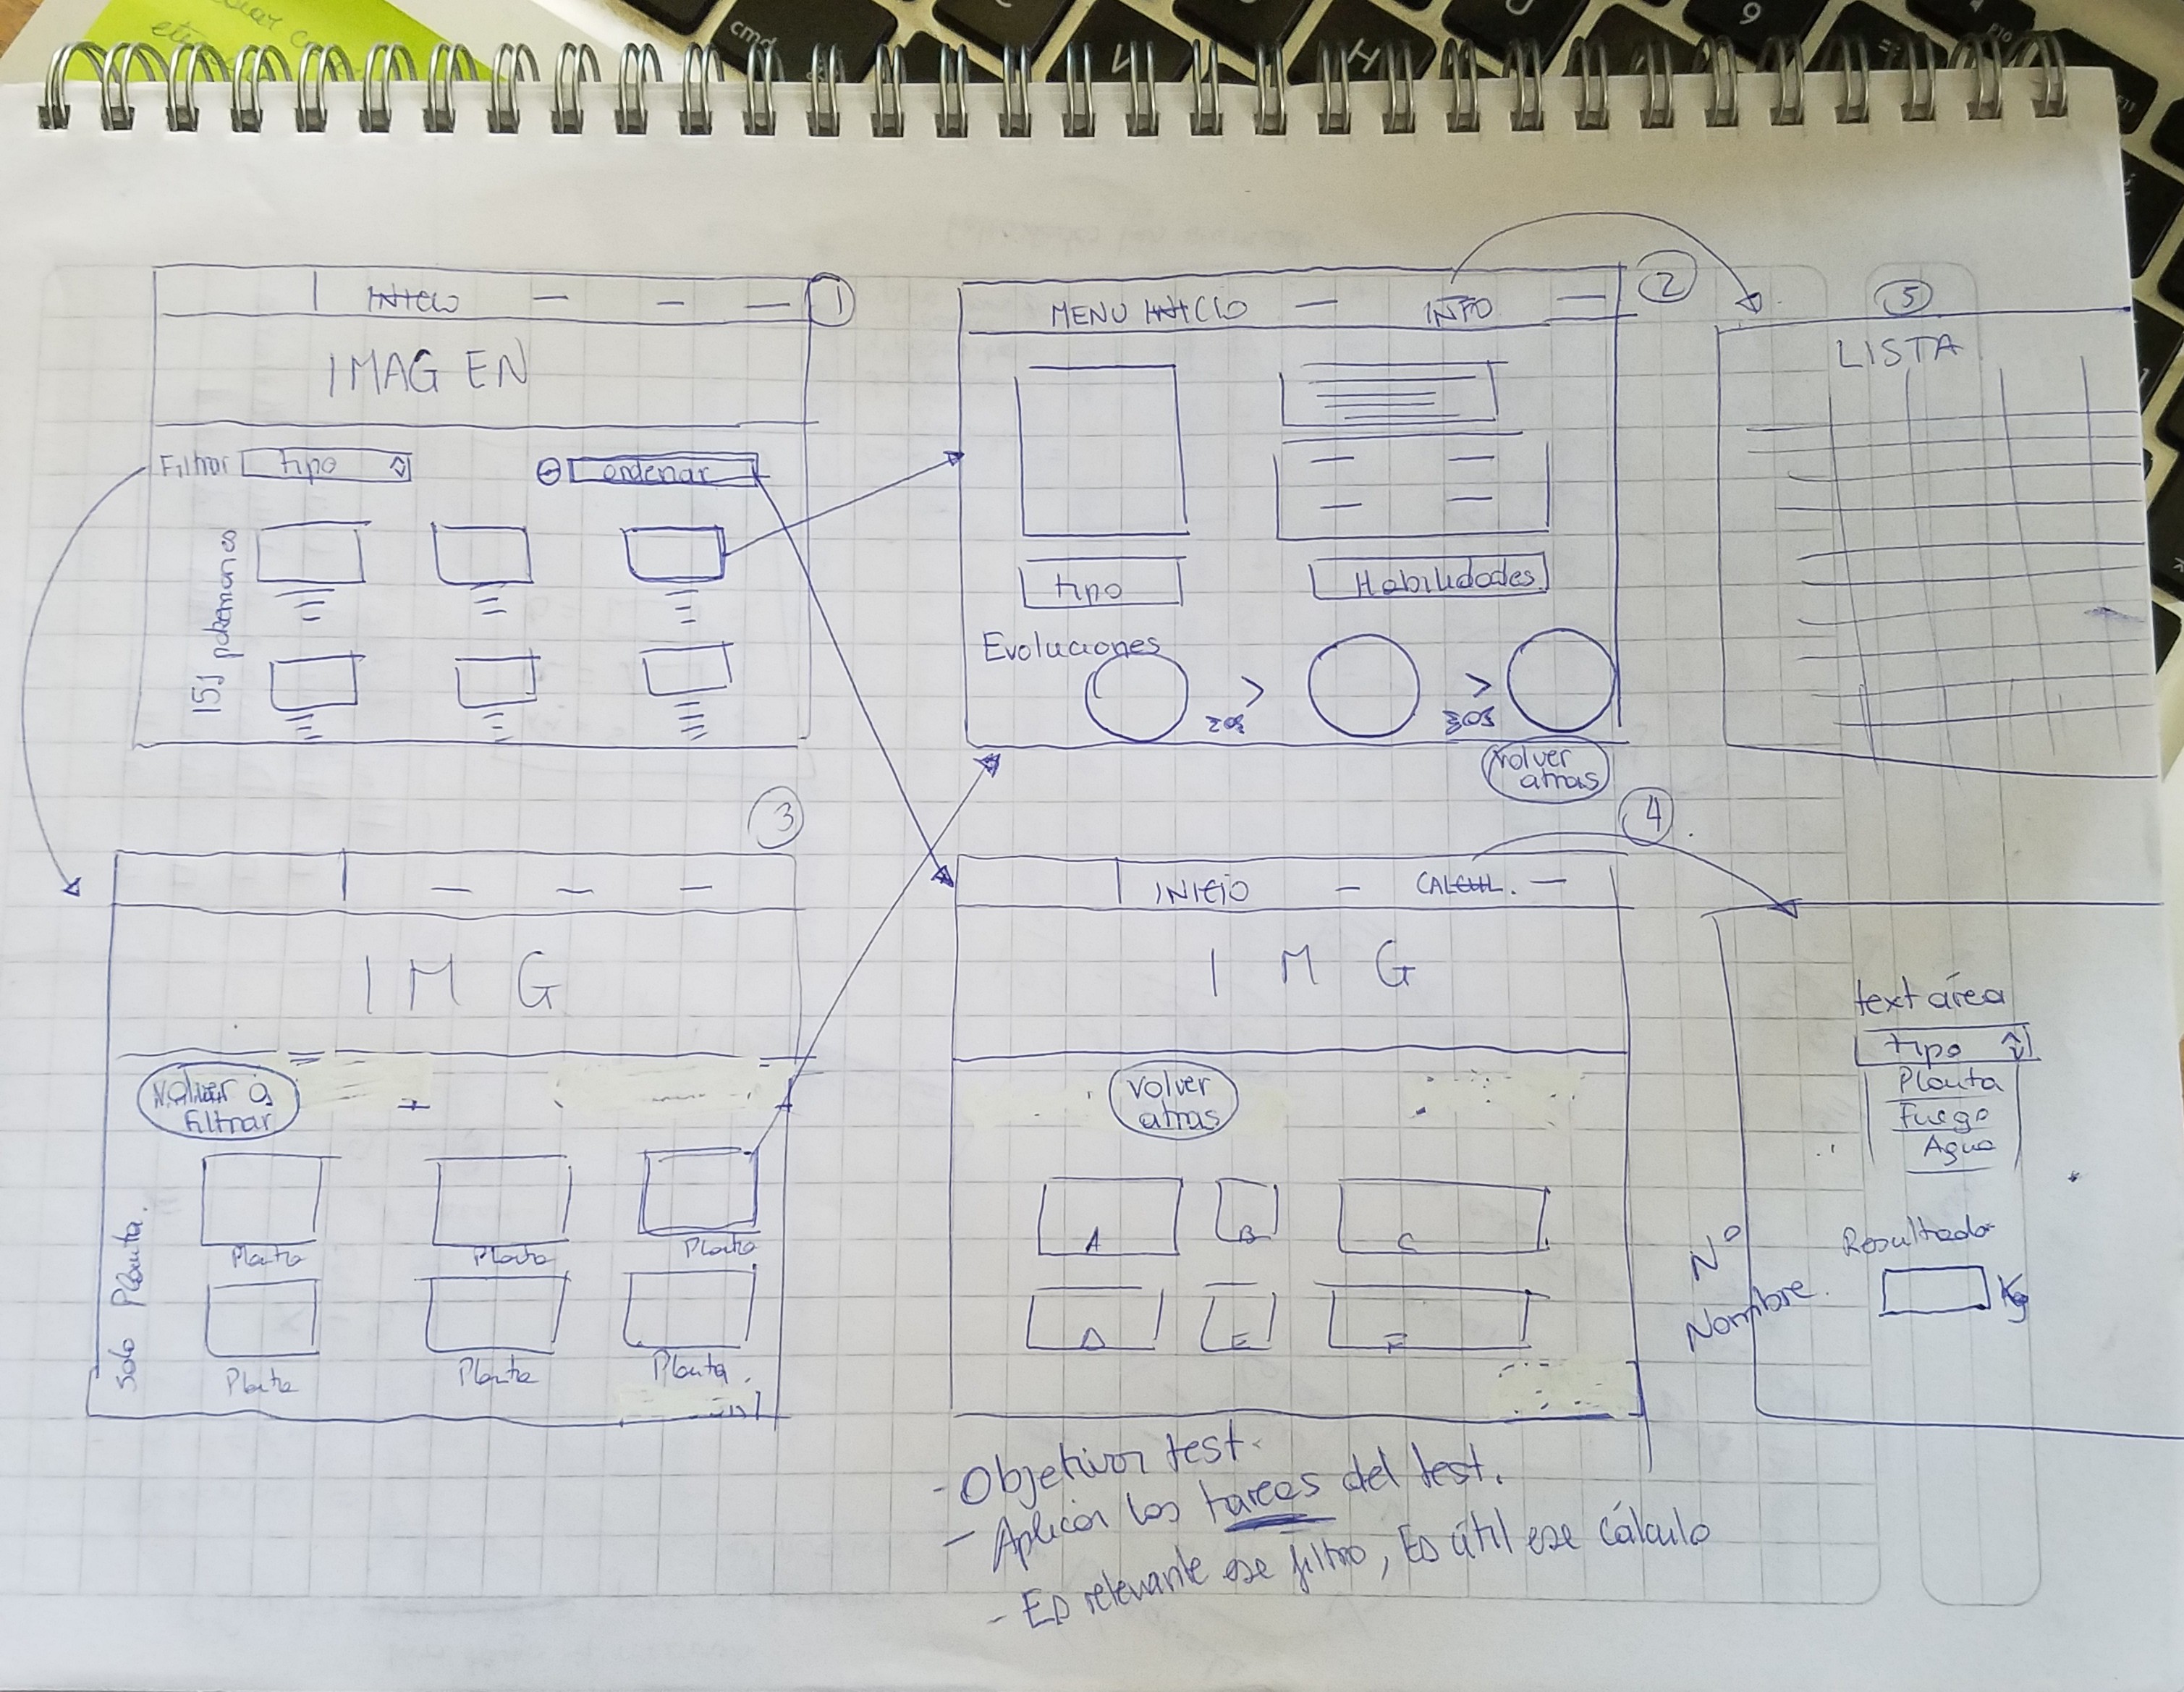 INICIO
1
IMAGEN
Filtrar tipo
ordenar
151 pokemones
MENU INICIO
INFO
2
tipo
Habilidades
Evoluciones
>
>
volver
atras
5
LISTA
3
I M G
Volver a
filtrar
Planta
Planta
Planta
Planta
Planta
Planta.
Solo Planta.
4
INICIO
CALCUL.
I M G
volver
atras
A
B
C
D
E
F
text área
tipo
Planta
Fuego
Agua
Resultado
Kg
Nº
Nombre.
- Objetivos test.
- Aplicar las tareas del test.
- Es relevante ese filtro, Es útil ese cálculo
cmd
V
H
9
F10
F11